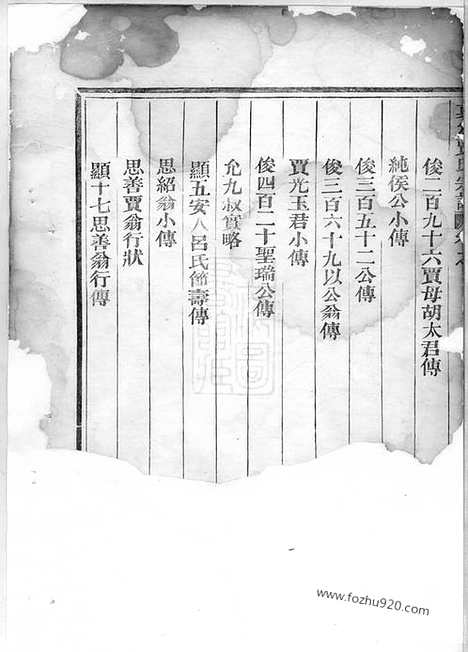 俊二百九十六賈母胡太君傳
純侯公小傳
俊三百五十二公傳
俊三百六十九以公翁傳
賈光玉君小傳
俊四百二十聖瑞公傳
允九叔實略
顯五安人呂氏節壽傳
思紹翁小傳
思善賈翁行狀
顯十七思善翁行傳
www.fozhu920.com